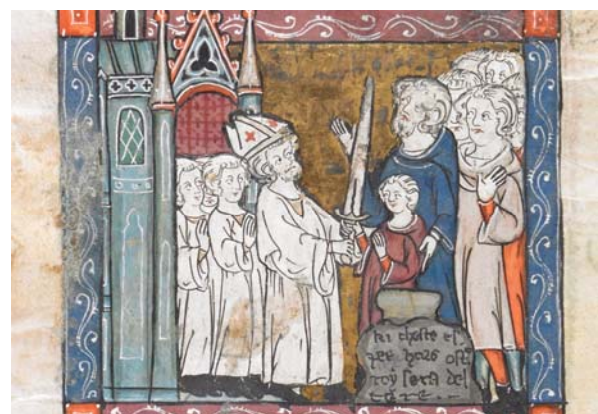 ki cheste es
pee hors oste
roy sera del
tere